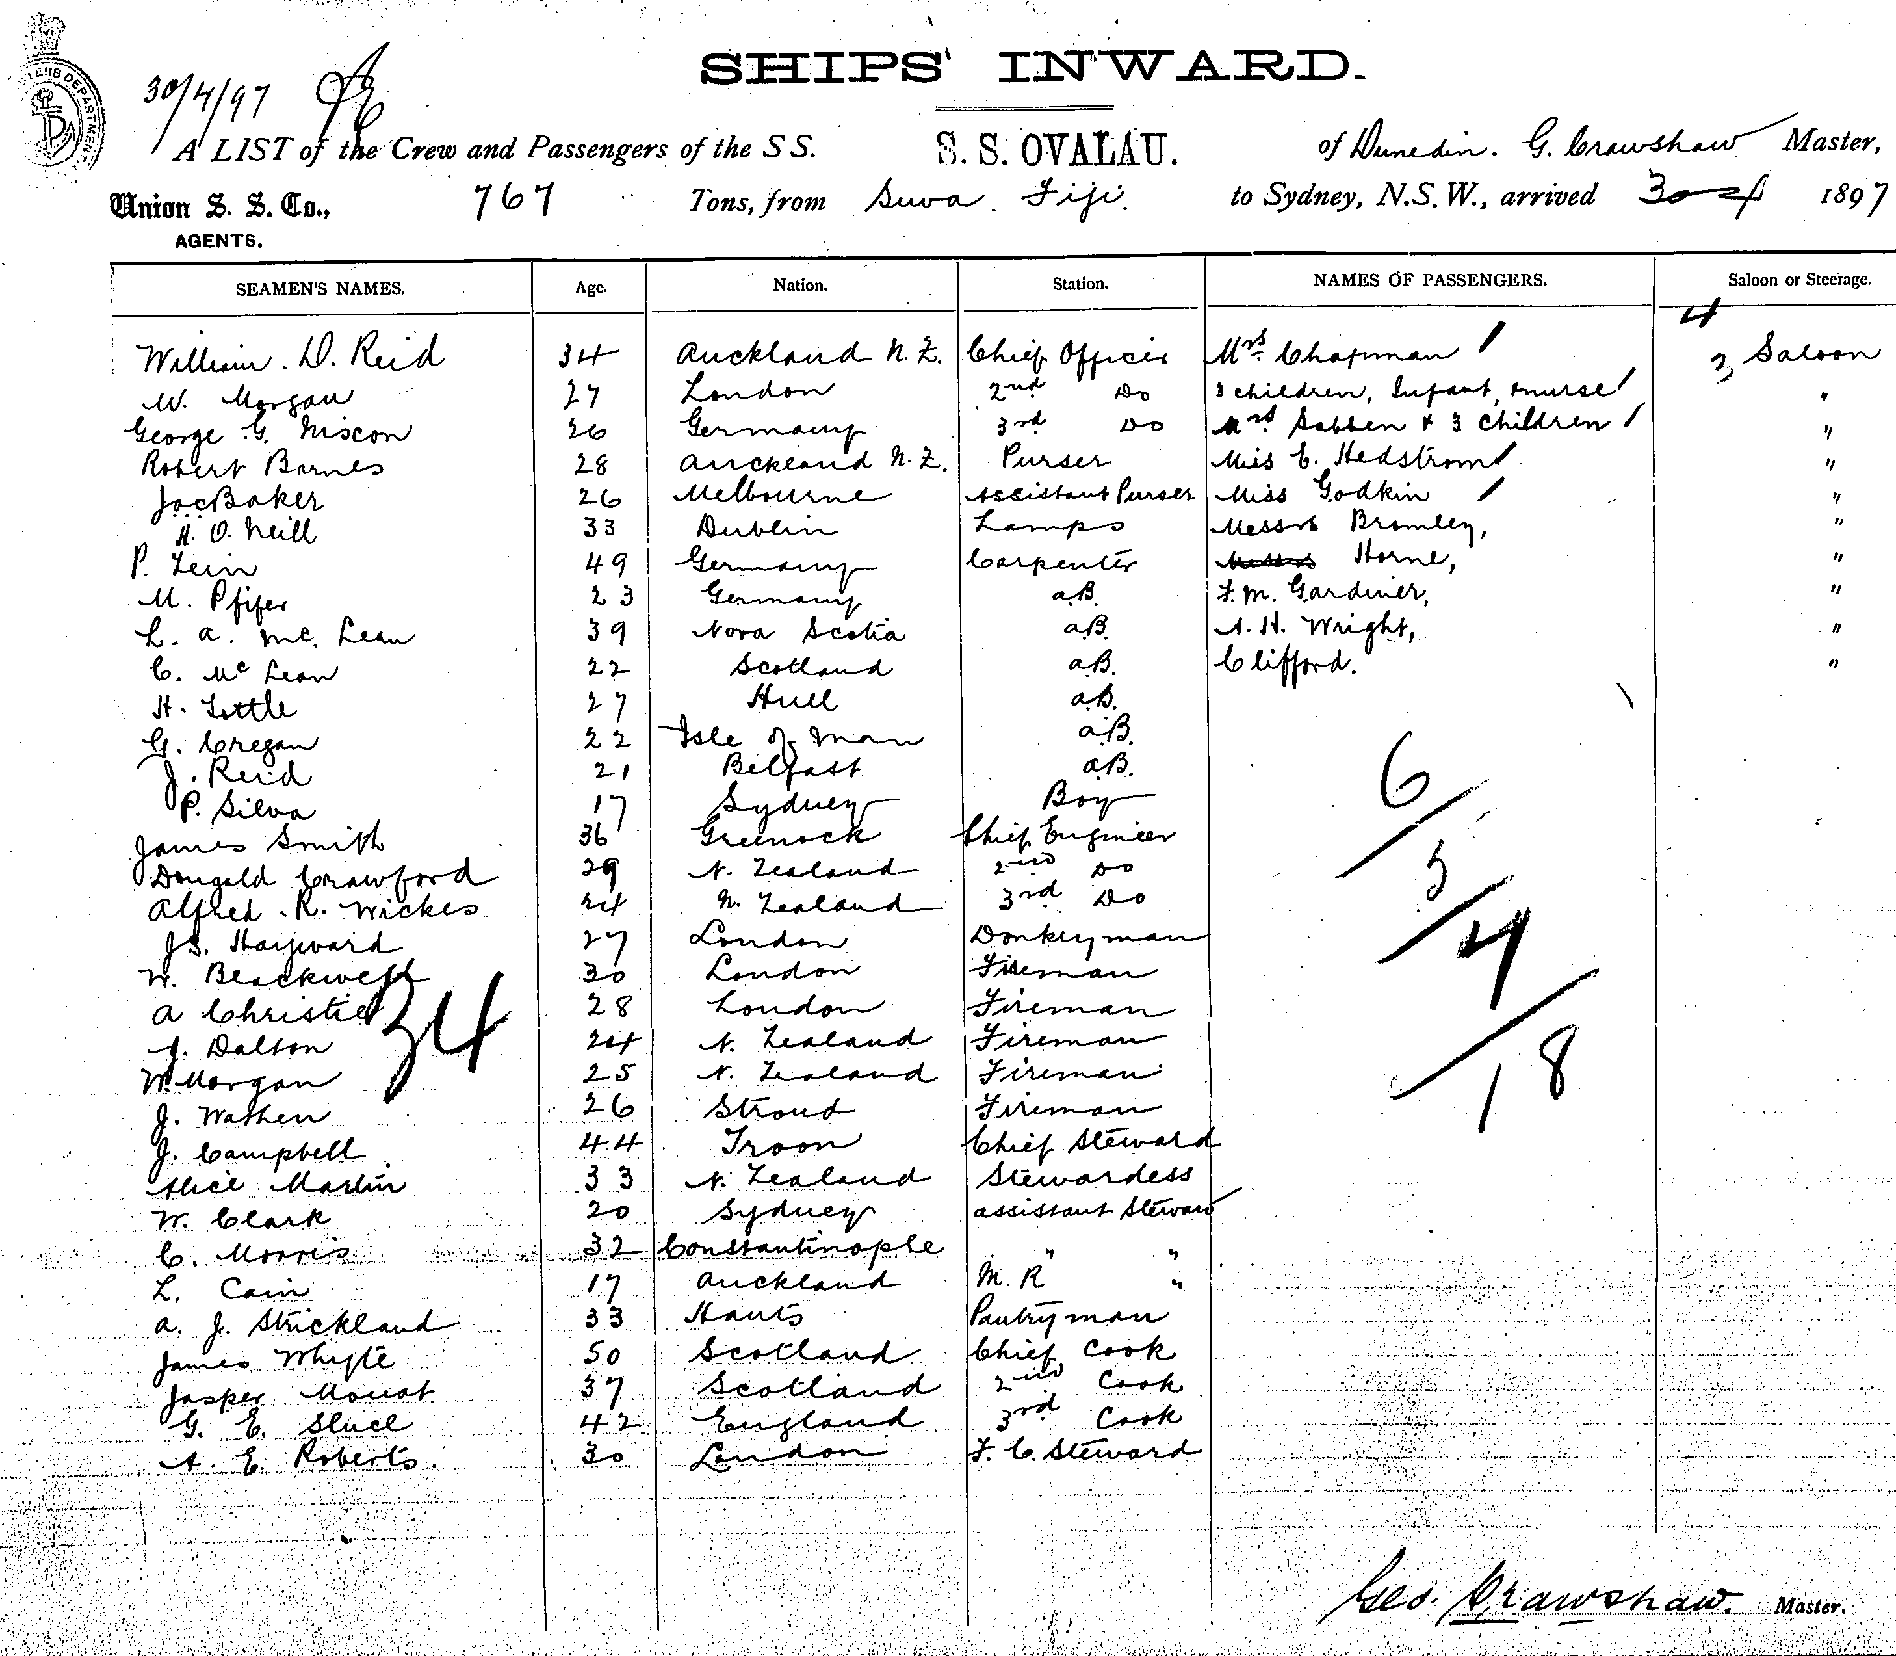 SHIPS' INWARD.
30/4/97
A LIST of the Crew and Passengers of the S S. S. S. OVALAU. of Dunedin. G. Crawshaw Master,
Union S. S. Co., 767 Tons, from Suva. Fiji. to Sydney, N.S.W., arrived 30 4 1897
AGENTS.
SEAMEN'S NAMES. Age. Nation. Station. NAMES OF PASSENGERS. Saloon or Steerage.
4
William. D. Reid 34 Auckland N. Z. Chief Officer Mrs Chapman 3 Saloon
W. Morgan 27 London 2nd Do 3 children, Infant, + nurse "
George G. Niscon 26 Germany 3rd Do Mrs Sabben + 3 children "
Robert Barnes 28 Auckland N. Z. Purser Miss C. Hedstrom "
Jac Baker 26 Melbourne Assistant Purser Miss Godkin "
H. O. Neill 33 Dublin Lamps Messrs Bromley, "
P. Zein 49 Germany Carpenter Horne, "
M. Pfifer 23 Germany a.B. F. M. Gardiner, "
L. a. Mc. Lean 39 Nova Scotia a.B. A. H. Wright, "
C. Mc Lean 22 Scotland a.B. Clifford. "
H. Tottle 27 Hull a.B.
G. Cregan 22 Isle of Man a.B.
J. Reid 21 Belfast a.B.
P. Silva 17 Sydney Boy
James Smith 36 Greenock Chief Engineer
Dougald Crawford 29 N. Zealand 2nd Do
Alfred. R. Wickes 24 N. Zealand 3rd Do
JS. Hayward 27 London Donkeyman
W. Blackwell 30 London Fireman
A Christie 28 London Fireman
J. Dalton 24 N. Zealand Fireman
W. Morgan 25 N. Zealand Fireman
J. Wathen 26 Stroud Fireman
J. Campbell 44 Troon Chief Steward
Alice Martin 33 N. Zealand Stewardess
W. Clark 20 Sydney assistant Steward
C. Morris 32 Constantinople " "
L. Cain 17 Auckland M. R "
a. J. Strickland 33 Hants Pantryman
James Whyte 50 Scotland Chief Cook
Jasper Mouat 37 Scotland 2nd Cook
G. E. Sluce 42 England 3rd Cook
A. E. Roberts. 30 London F. C. Steward
34
6/
5/
4/
18
Geo. Crawshaw. Master.